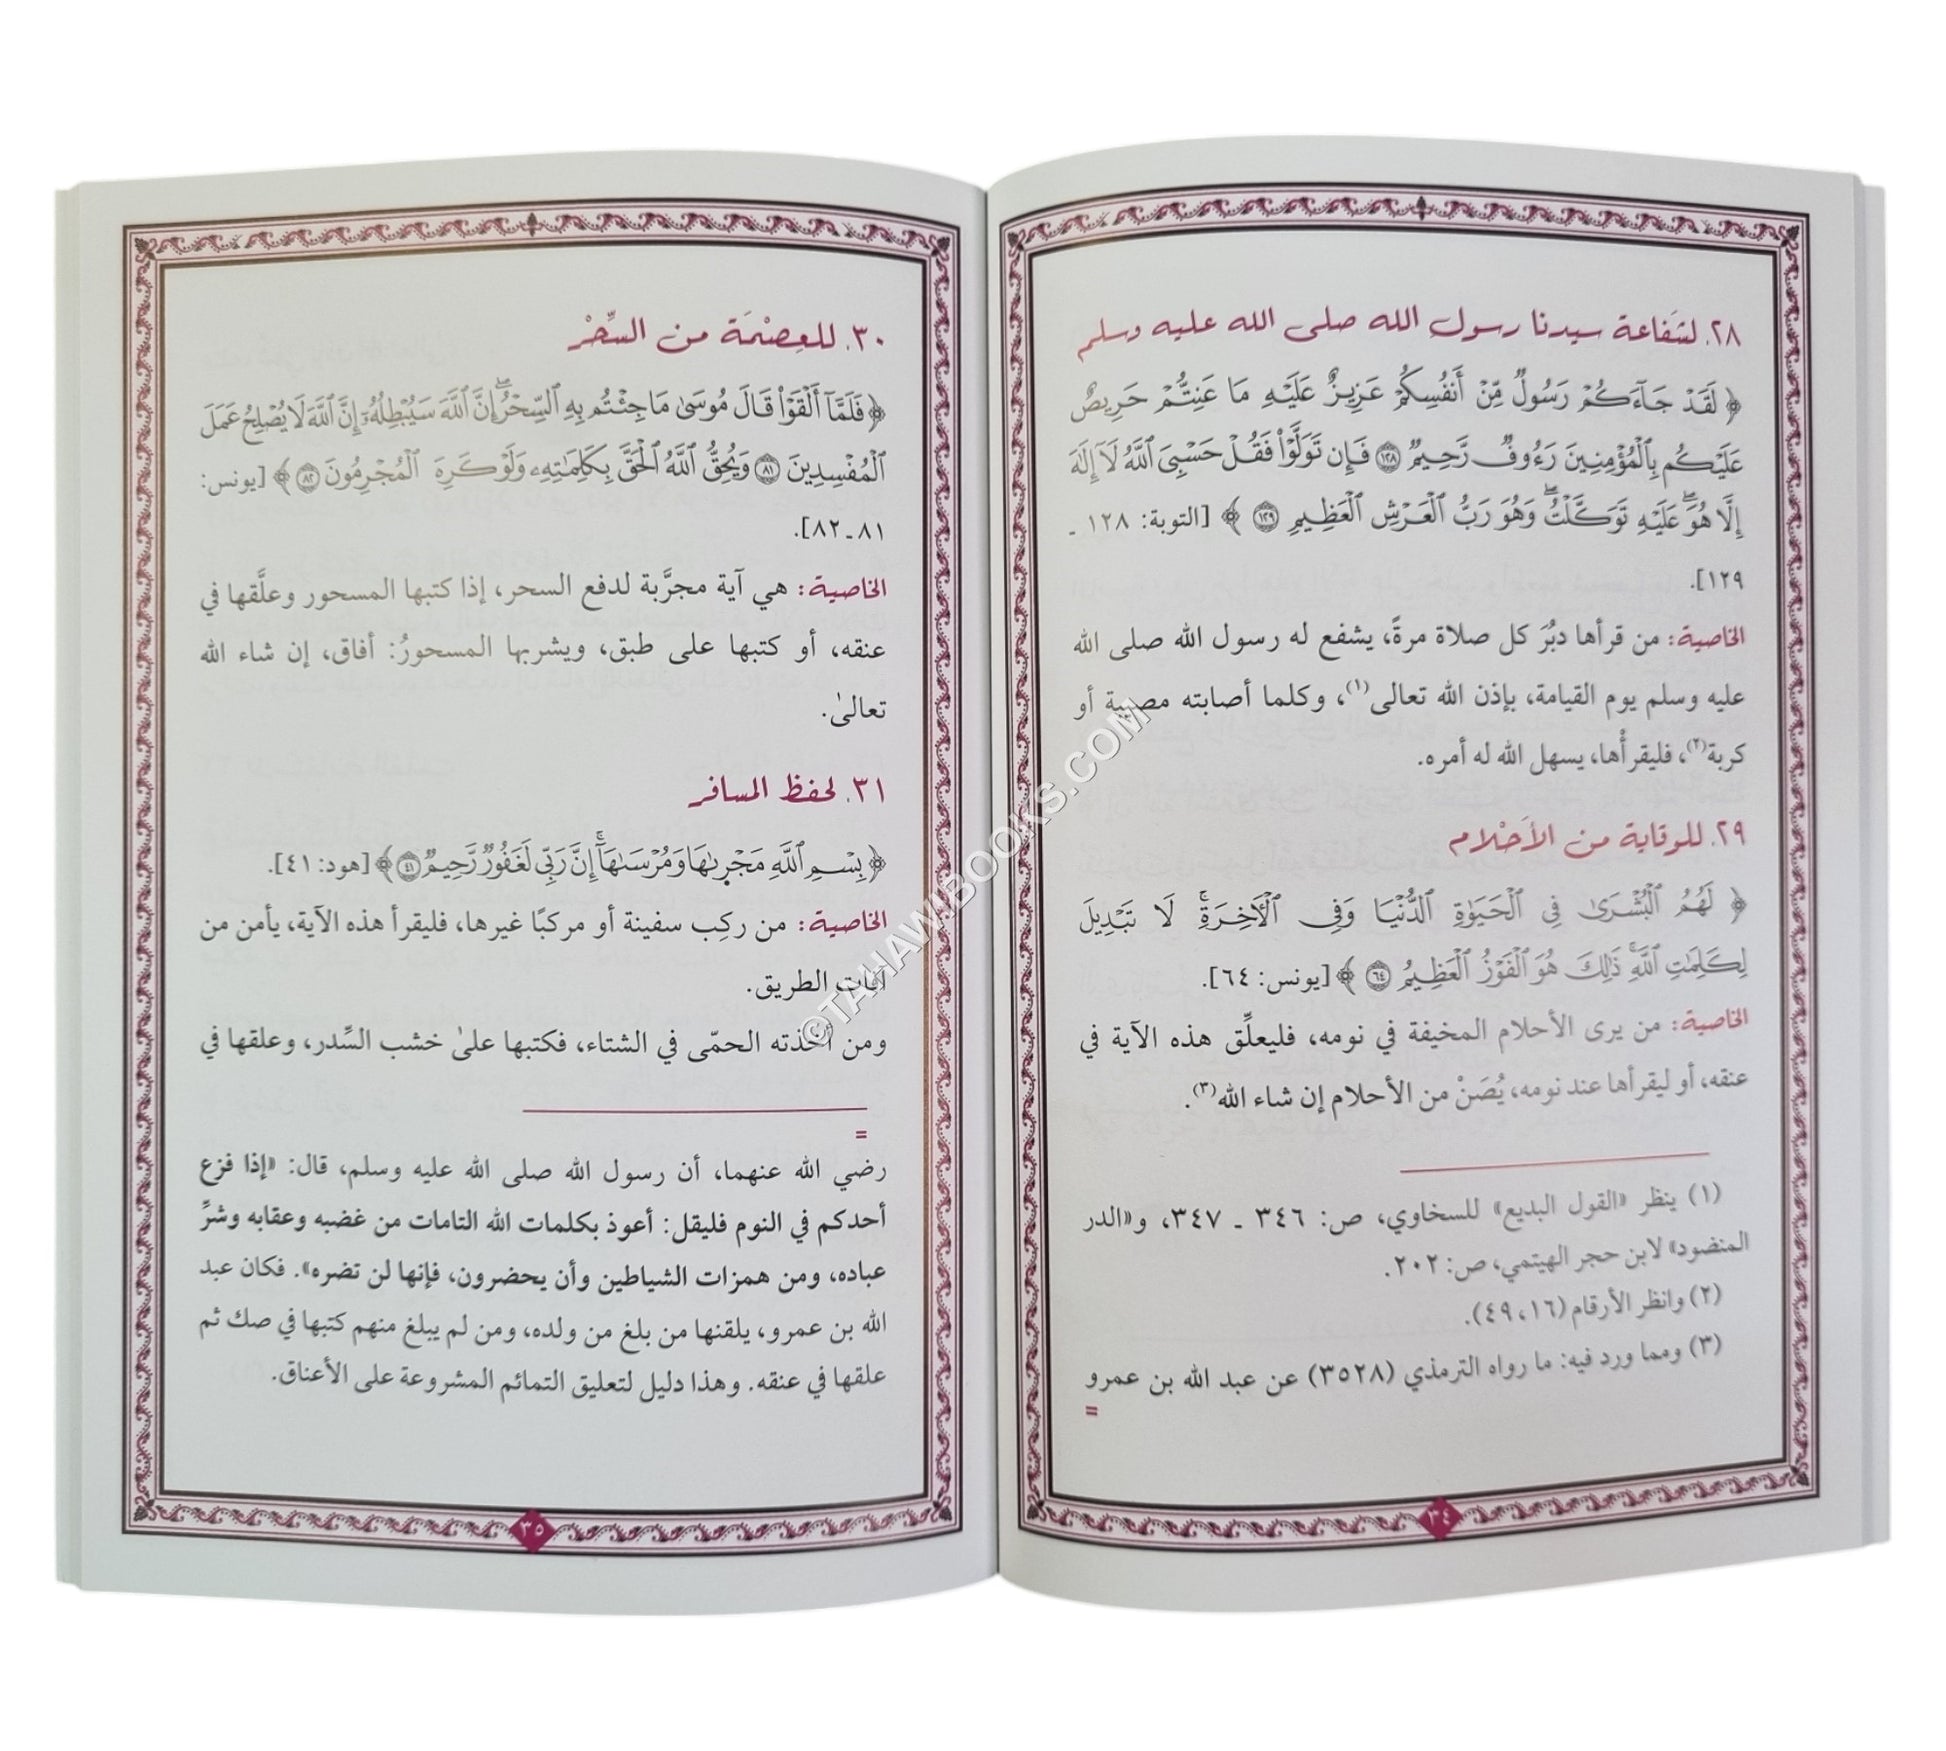 ٢٨. لشفاعة سيدنا رسول الله صلى الله عليه وسلم
﴿ لَقَدْ جَآءَكُمْ رَسُولٌ مِّنْ أَنفُسِكُمْ عَزِيزٌ عَلَيْهِ مَا عَنِتُّمْ حَرِيصٌ
عَلَيْكُم بِالْمُؤْمِنِينَ رَءُوفٌ رَّحِيمٌ ﴿١٢٨﴾ فَإِن تَوَلَّوْاْ فَقُلْ حَسْبِىَ ٱللَّهُ لَآ إِلَٰهَ
إِلَّا هُوَ ۖ عَلَيْهِ تَوَكَّلْتُ ۖ وَهُوَ رَبُّ ٱلْعَرْشِ ٱلْعَظِيمِ ﴿١٢٩﴾ ﴾ [التوبة: ١٢٨ ـ
١٢٩].
الخاصية: من قرأها دبُرَ كل صلاة مرةً، يشفع له رسول الله صلى الله
عليه وسلم يوم القيامة، بإذن الله تعالى(١)، وكلما أصابته مصيبة أو
كربة(٢)، فليقرأْها، يسهل الله له أمره.
٢٩. للوقاية من الأَحْلام
﴿ لَهُمُ ٱلْبُشْرَىٰ فِى ٱلْحَيَوٰةِ ٱلدُّنْيَا وَفِى ٱلْأَخِرَةِ ۚ لَا تَبْدِيلَ
لِكَلِمَٰتِ ٱللَّهِ ۚ ذَٰلِكَ هُوَ ٱلْفَوْزُ ٱلْعَظِيمُ ﴿٦٤﴾ ﴾ [يونس: ٦٤].
الخاصية: من يرى الأحلام المخيفة في نومه، فليعلِّق هذه الآية في
عنقه، أو ليقرأها عند نومه، يُصَنْ من الأحلام إن شاء الله(٣).
(١) ينظر «القول البديع» للسخاوي، ص: ٣٤٦ ـ ٣٤٧، و«الدر
المنضود» لابن حجر الهيتمي، ص: ٢٠٢.
(٢) وانظر الأرقام (١٦، ٤٩).
(٣) ومما ورد فيه: ما رواه الترمذي (٣٥٢٨) عن عبد الله بن عمرو
=
٣٤
٣٠. للعِصْمَة من السِّحْر
﴿فَلَمَّآ أَلْقَوْاْ قَالَ مُوسَىٰ مَا جِئْتُم بِهِ ٱلسِّحْرُ ۖ إِنَّ ٱللَّهَ سَيُبْطِلُهُۥٓ ۖ إِنَّ ٱللَّهَ لَا يُصْلِحُ عَمَلَ
ٱلْمُفْسِدِينَ ﴿٨١﴾ وَيُحِقُّ ٱللَّهُ ٱلْحَقَّ بِكَلِمَٰتِهِۦ وَلَوْ كَرِهَ ٱلْمُجْرِمُونَ ﴿٨٢﴾ ﴾ [يونس:
٨١ـ٨٢].
الخاصية: هي آية مجرَّبة لدفع السحر، إذا كتبها المسحور وعلَّقها في
عنقه، أو كتبها على طبق، ويشربها المسحورُ: أفاق، إن شاء الله
تعالىٰ.
٣١. لحفظ المسافر
﴿بِسْمِ ٱللَّهِ مَجْر۪ىٰهَا وَمُرْسَىٰهَآ ۚ إِنَّ رَبِّى لَغَفُورٌ رَّحِيمٌ ﴿٤١﴾﴾ [هود: ٤١].
الخاصية: من ركِب سفينة أو مركبًا غيرها، فليقرأ هذه الآية، يأمن من
آفات الطريق.
ومن أخذته الحمّى في الشتاء، فكتبها علىٰ خشب السِّدر، وعلقها في
=
رضي الله عنهما، أن رسول الله صلى الله عليه وسلم، قال: «إذا فزع
أحدكم في النوم فليقل: أعوذ بكلمات الله التامات من غضبه وعقابه وشرِّ
عباده، ومن همزات الشياطين وأن يحضرون، فإنها لن تضره». فكان عبد
الله بن عمرو، يلقنها من بلغ من ولده، ومن لم يبلغ منهم كتبها في صك ثم
علقها في عنقه. وهذا دليل لتعليق التمائم المشروعة على الأعناق.
٣٥
©TAHAWIBOOKS.COM